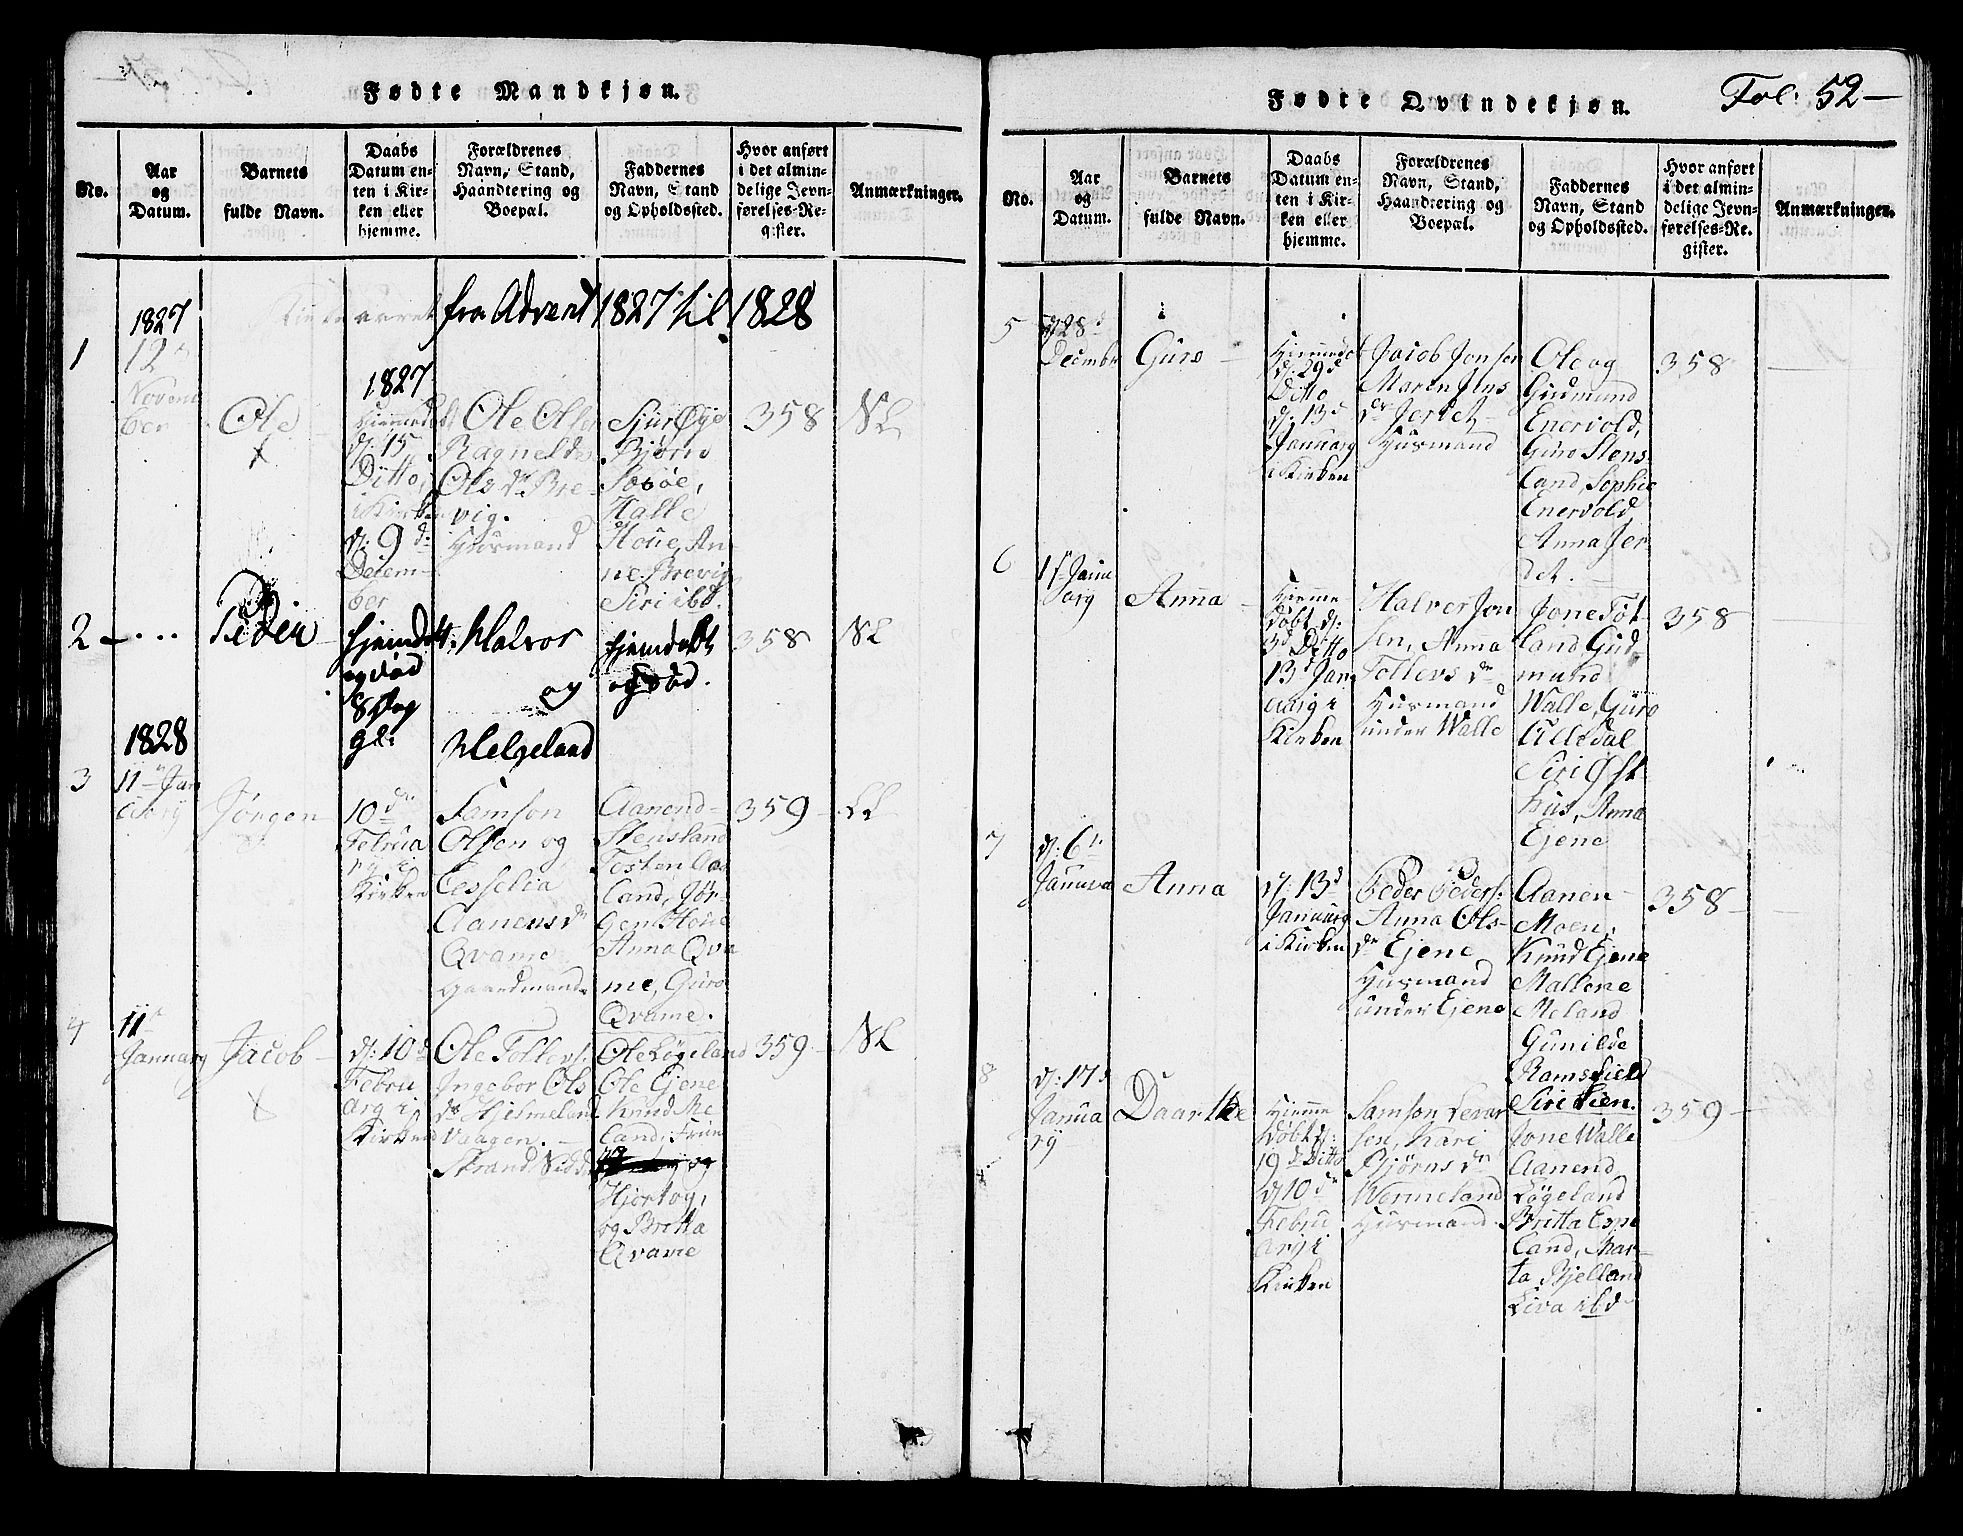 Fødte Mandkjøn.
No.
Aar
og
Datum.
Barnets
fulde Navn.
Daabs
Datum en-
ten i Kir-
ken eller
hjemme.
Forældrenes
Navn, Stand,
Haandtering og
Boepæl.
Faddernes
Navn, Stand
og Opholdssted.
Hvor anført
i det almin-
delige Jevn-
førelses-Re-
gister.
Anmærkninger.
fra Advent 1827 til 1828
1
1827
12
Novem
ber
Ole
1827
d: 15
Ditto,
i Kirken
d: 9 d:
Decem-
ber
Ole Olsen
Ragneld
Ols dr Bre-
vig.
Husmand
Sjur Øye
Bjørn
Halle
Houe, An
ne Brevig
Siri ibd.
358
NL
2
Peder
hjemdøbt
og død
8 Dag
gl:
Halvor
og
Helgeland
hjemdøbt
og død.
358
NL
3
1828
11 Jan
uary
Jørgen
10 d
Februa
ry i
Kirken
Samson
Olsen og
Cesselia
Aanensdr
Qvame
Gaardmand
Aanend
Stensland
Tosten Aas
land, Jør
gen Houe
Anna Qva
me, Guro
Qvame.
359
LL
4
11
January
Jacob
d: 10 d
Febru
ary i
Kirken
Ole Tollevs:
Ingebor Ols
dr Hjelmeland
Vaagen.
Strand Sidd
Ole Løgeland
Ole Ejene
Knud Me
land,
og
Hjortog,
og Britta
Qvame
359
NL
Fol: 52
Fødte Qvindekjøn.
No.
Aar
og
Datum.
Barnets
fulde Navn.
Daabs
Datum en-
ten i Kir-
ken eller
hjemme.
Forældrenes
Navn, Stand,
Haandtering og
Boepæl.
Faddernes
Navn, Stand
og Opholdssted.
Hvor anført
i det almin-
delige Jevn-
førelses-Re-
gister.
Anmærkninger.
5
d 28 d
Decembr
Guro
d: 29 d
Ditto
d: 13 d
January
i Kirken
Jacob Jonsen
Maren Jens
dr Jerdet
Husmand
Ole og
Gudmund
Enervold,
Guro Stens
land, Sophie
Enervold
Anna Jer
det.
358
6
1 Janu
ary
Anna
Hiemme
døbt d:
3 d Ditto
13 d Jan
uary i
Kirken
Halver Jon
sen, Anna
Tollevs dr
Husmand
under Walle
Jone Tot
land, Gud
mund
Walle, Guro
Lilledal
Siri Øst
hus, Anna
Ejene
358
7
d: 6
Janua
Anna
d: 13 d
January
i Kirken
Peder Peders:
Anna Ols
dr Ejene
Husmand
under Ejene
Aanen
Moen,
Knud Ejene
Mallene
Meland
Gunilde
Ramsfield
Siri Lien.
358
8
d: 17 d
Janua
ry
Daarthe
Hiemme
døbt d:
19 d Ditto
d 10 d
Febru
ary i
Kirken
Samson Sevar
sen, Kari
Bjørns dr
Wermeland
Husmand
Jone Walle
Aanend
Løgeland
Britta Espe
land, Mar-
ta Bjelland
Liva ibd
359